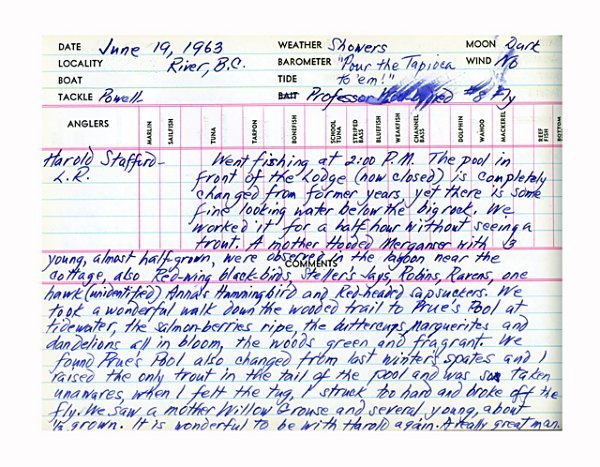 DATE June 19, 1963 WEATHER Showers MOON Dark
LOCALITY River, B.C. BAROMETER "Pour the Tapioca WIND No
BOAT TIDE to 'em!"
TACKLE Powell BAIT Professor #8 Fly
ANGLERS MARLIN SAILFISH TUNA TARPON BONEFISH SCHOOL TUNA STRIPED BASS BLUEFISH WEAKFISH CHANNEL BASS DOLPHIN WAHOO MACKEREL REEF FISH BOTTOM
Harold Stafford- Went fishing at 2:00 P.M. The pool in
L.R. front of the Lodge (now closed) is completely
changed from former years, yet there is some
fine looking water below the big rock. We
worked it for a half hour without seeing a
trout. A mother Hooded Merganser with 13
young, almost half-grown, were observed in the lagoon near the
COMMENTS
cottage, also Red-wing blackbirds, Steller's Jays, Robins, Ravens, one
hawk (unidentified) Anna's Hummingbird and Red-headed sapsuckers. We
took a wonderful walk down the wooded trail to Prue's Pool at
tidewater, the salmon-berries ripe, the buttercups, Marguerites and
dandelions all in bloom, the woods green and fragrant. We
found Prue's Pool also changed from last winter's spates and I
raised the only trout in the tail of the pool and was so taken
unawares, when I felt the tug, I struck too hard and broke off the
fly. We saw a mother Willow Grouse and several young, about
½ grown. It is wonderful to be with Harold again. A really great man.